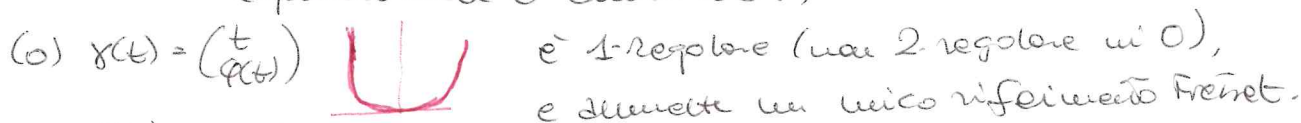 (0) γ(t) = (t φ(t)) è 1-regolare (non 2-regolare in 0),
e ammette un unico riferimento Frenet.